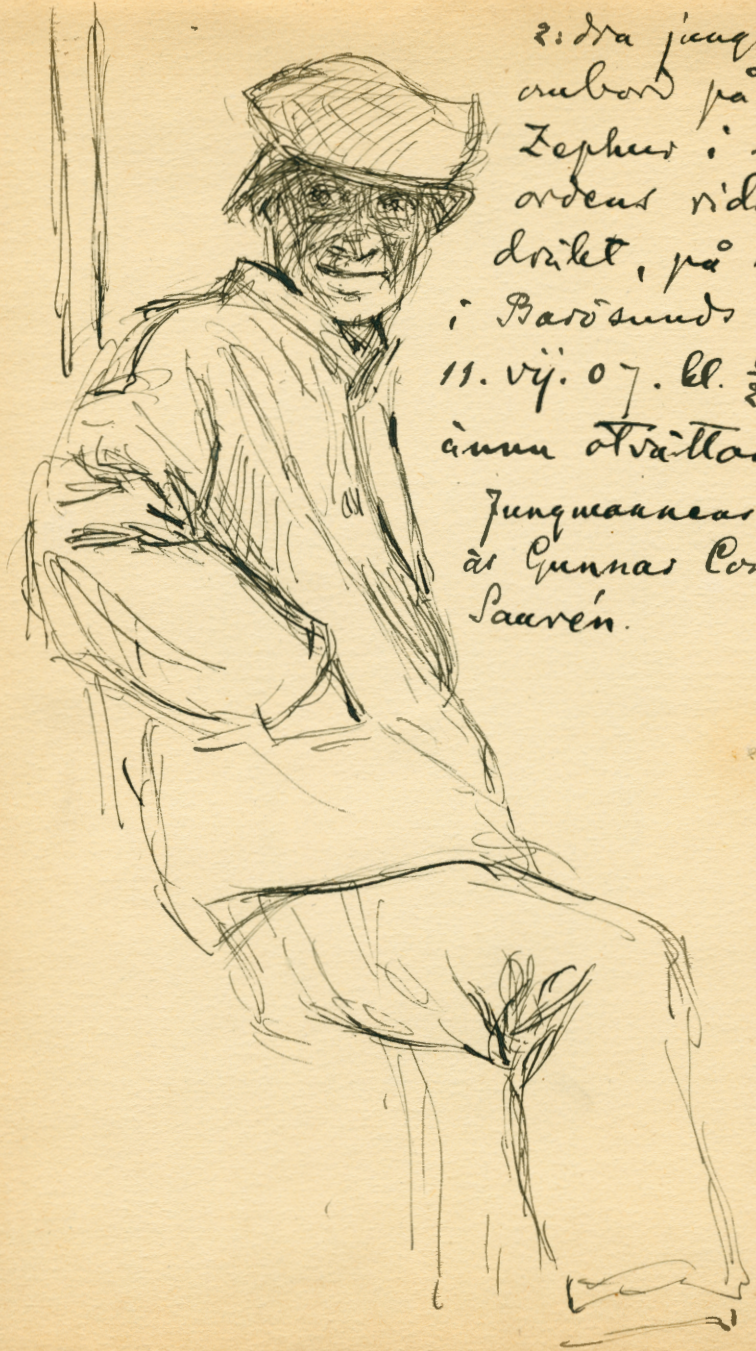 2:dra jung
ombord på
Zephyr i
ordens rid
dräkt, på
i Barösunds
11. VII. 07. kl.
ännu otvätta
Jungmannens
är Gunnar Co
Saurén.